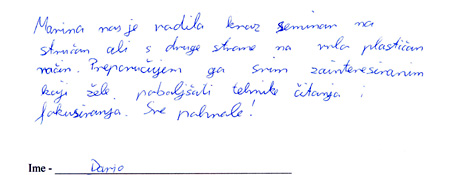 Marina nas je vodila kroz seminar na
stručan ali s druge strane na vrlo plastičan
način. Preporučujem ga svim zainteresiranim
koji žele poboljšati tehnike čitanja i
fokusiranja. Sve pohvale!
Ime - Dario